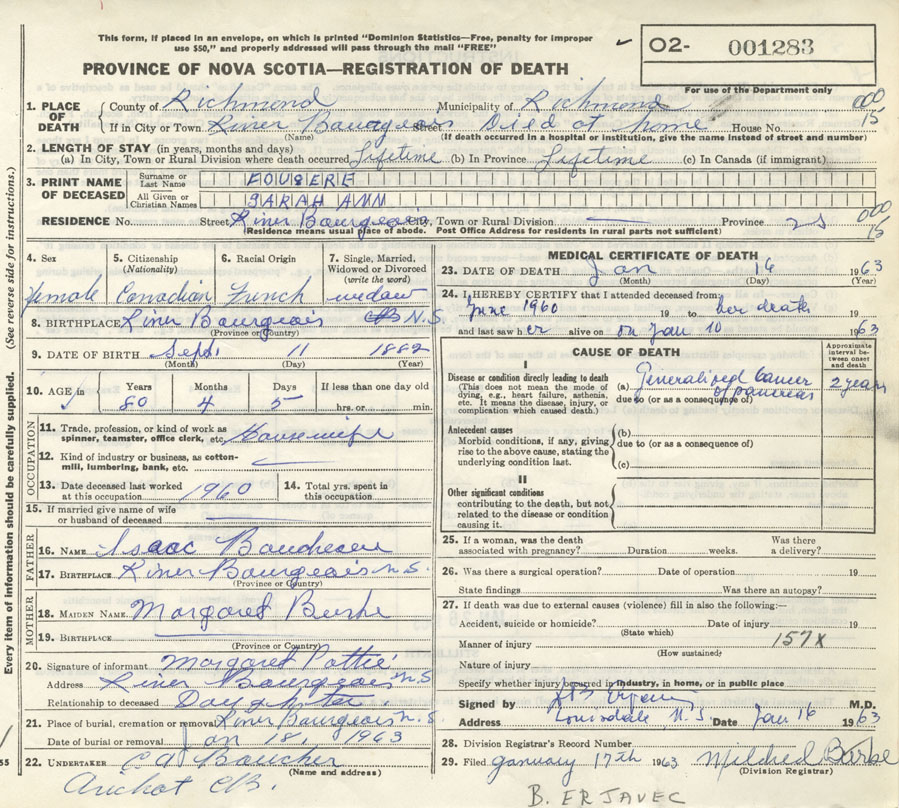 This form, if placed in an envelope, on which is printed "Dominion Statistics—Free, penalty for improper
use $50," and properly addressed will pass through the mail "FREE"
O2- 001283
PROVINCE OF NOVA SCOTIA—REGISTRATION OF DEATH
For use of the Department only
1. PLACE OF DEATH
County of Richmond Municipality of Richmond
000 15
If in City or Town River Bourgeois Street Died at home House No.
(Name) (If death occurred in a hospital or institution, give the name instead of street and number)
2. LENGTH OF STAY (in years, months and days)
(a) In City, Town or Rural Division where death occurred Lifetime (b) In Province Lifetime (c) In Canada (if immigrant)
3. PRINT NAME OF DECEASED
Surname or Last Name FOUGERE
All Given or Christian Names SARAH ANN
RESIDENCE No. Street River Bourgeois City, Town or Rural Division — Province NS
000 15
(Residence means usual place of abode. Post Office Address for residents in rural parts not sufficient)
4. Sex female
5. Citizenship (Nationality) Canadian
6. Racial Origin French
7. Single, Married, Widowed or Divorced (write the word) widow
8. BIRTHPLACE River Bourgeois N.S.
(Province or Country)
9. DATE OF BIRTH Sept. 11 1882
(Month) (Day) (Year)
10. AGE in Years Months Days If less than one day old
✓ 80 4 5 hrs. or min.
OCCUPATION
11. Trade, profession, or kind of work as spinner, teamster, office clerk, etc. Housewife
12. Kind of industry or business, as cotton-mill, lumbering, bank, etc. —
13. Date deceased last worked at this occupation 1960
14. Total yrs. spent in this occupation
15. If married give name of wife or husband of deceased —
FATHER
16. NAME Isaac Boudreau
17. BIRTHPLACE River Bourgeois N.S.
(Province or Country)
MOTHER
18. MAIDEN NAME Margaret Burke
19. BIRTHPLACE
(Province or Country)
20. Signature of informant Margaret Pottie
Address River Bourgeois N.S
Relationship to deceased Daughter
21. Place of burial, cremation or removal River Bourgeois N.S.
Date of burial or removal Jan 18, 1963
22. UNDERTAKER C A Boucher
(Name and address)
Arichat CB.
MEDICAL CERTIFICATE OF DEATH
23. DATE OF DEATH Jan 16 1963
(Month) (Day) (Year)
24. I HEREBY CERTIFY that I attended deceased from
June 1960 19 to her death
and last saw her alive on Jan 10 1963
CAUSE OF DEATH
Approximate interval between onset and death
I
Disease or condition directly leading to death
(This does not mean the mode of dying, e.g., heart failure, asthenia, etc. It means the disease, injury, or complication which caused death.)
(a) Generalized Cancer of pancreas 2 years
due to (or as a consequence of)
Antecedent causes
Morbid conditions, if any, giving rise to the above cause, stating the underlying condition last.
(b)
due to (or as a consequence of)
(c)
II
Other significant conditions
contributing to the death, but not related to the disease or condition causing it.
25. If a woman, was the death associated with pregnancy? Duration weeks. Was there a delivery?
26. Was there a surgical operation? Date of operation 19
State findings Was there an autopsy?
27. If death was due to external causes (violence) fill in also the following:—
Accident, suicide or homicide? Date of injury 19
(State which)
Manner of injury 157X
(How sustained)
Nature of injury
Specify whether injury occurred in industry, in home, or in public place
Signed by M.D.
Address Louisdale N.S. Date Jan 16 1963
28. Division Registrar's Record Number
29. Filed January 17th 1963 Mildred Burke
(Division Registrar)
B. ERJAVEC
Every item of information should be carefully supplied. (See reverse side for instructions.)
55